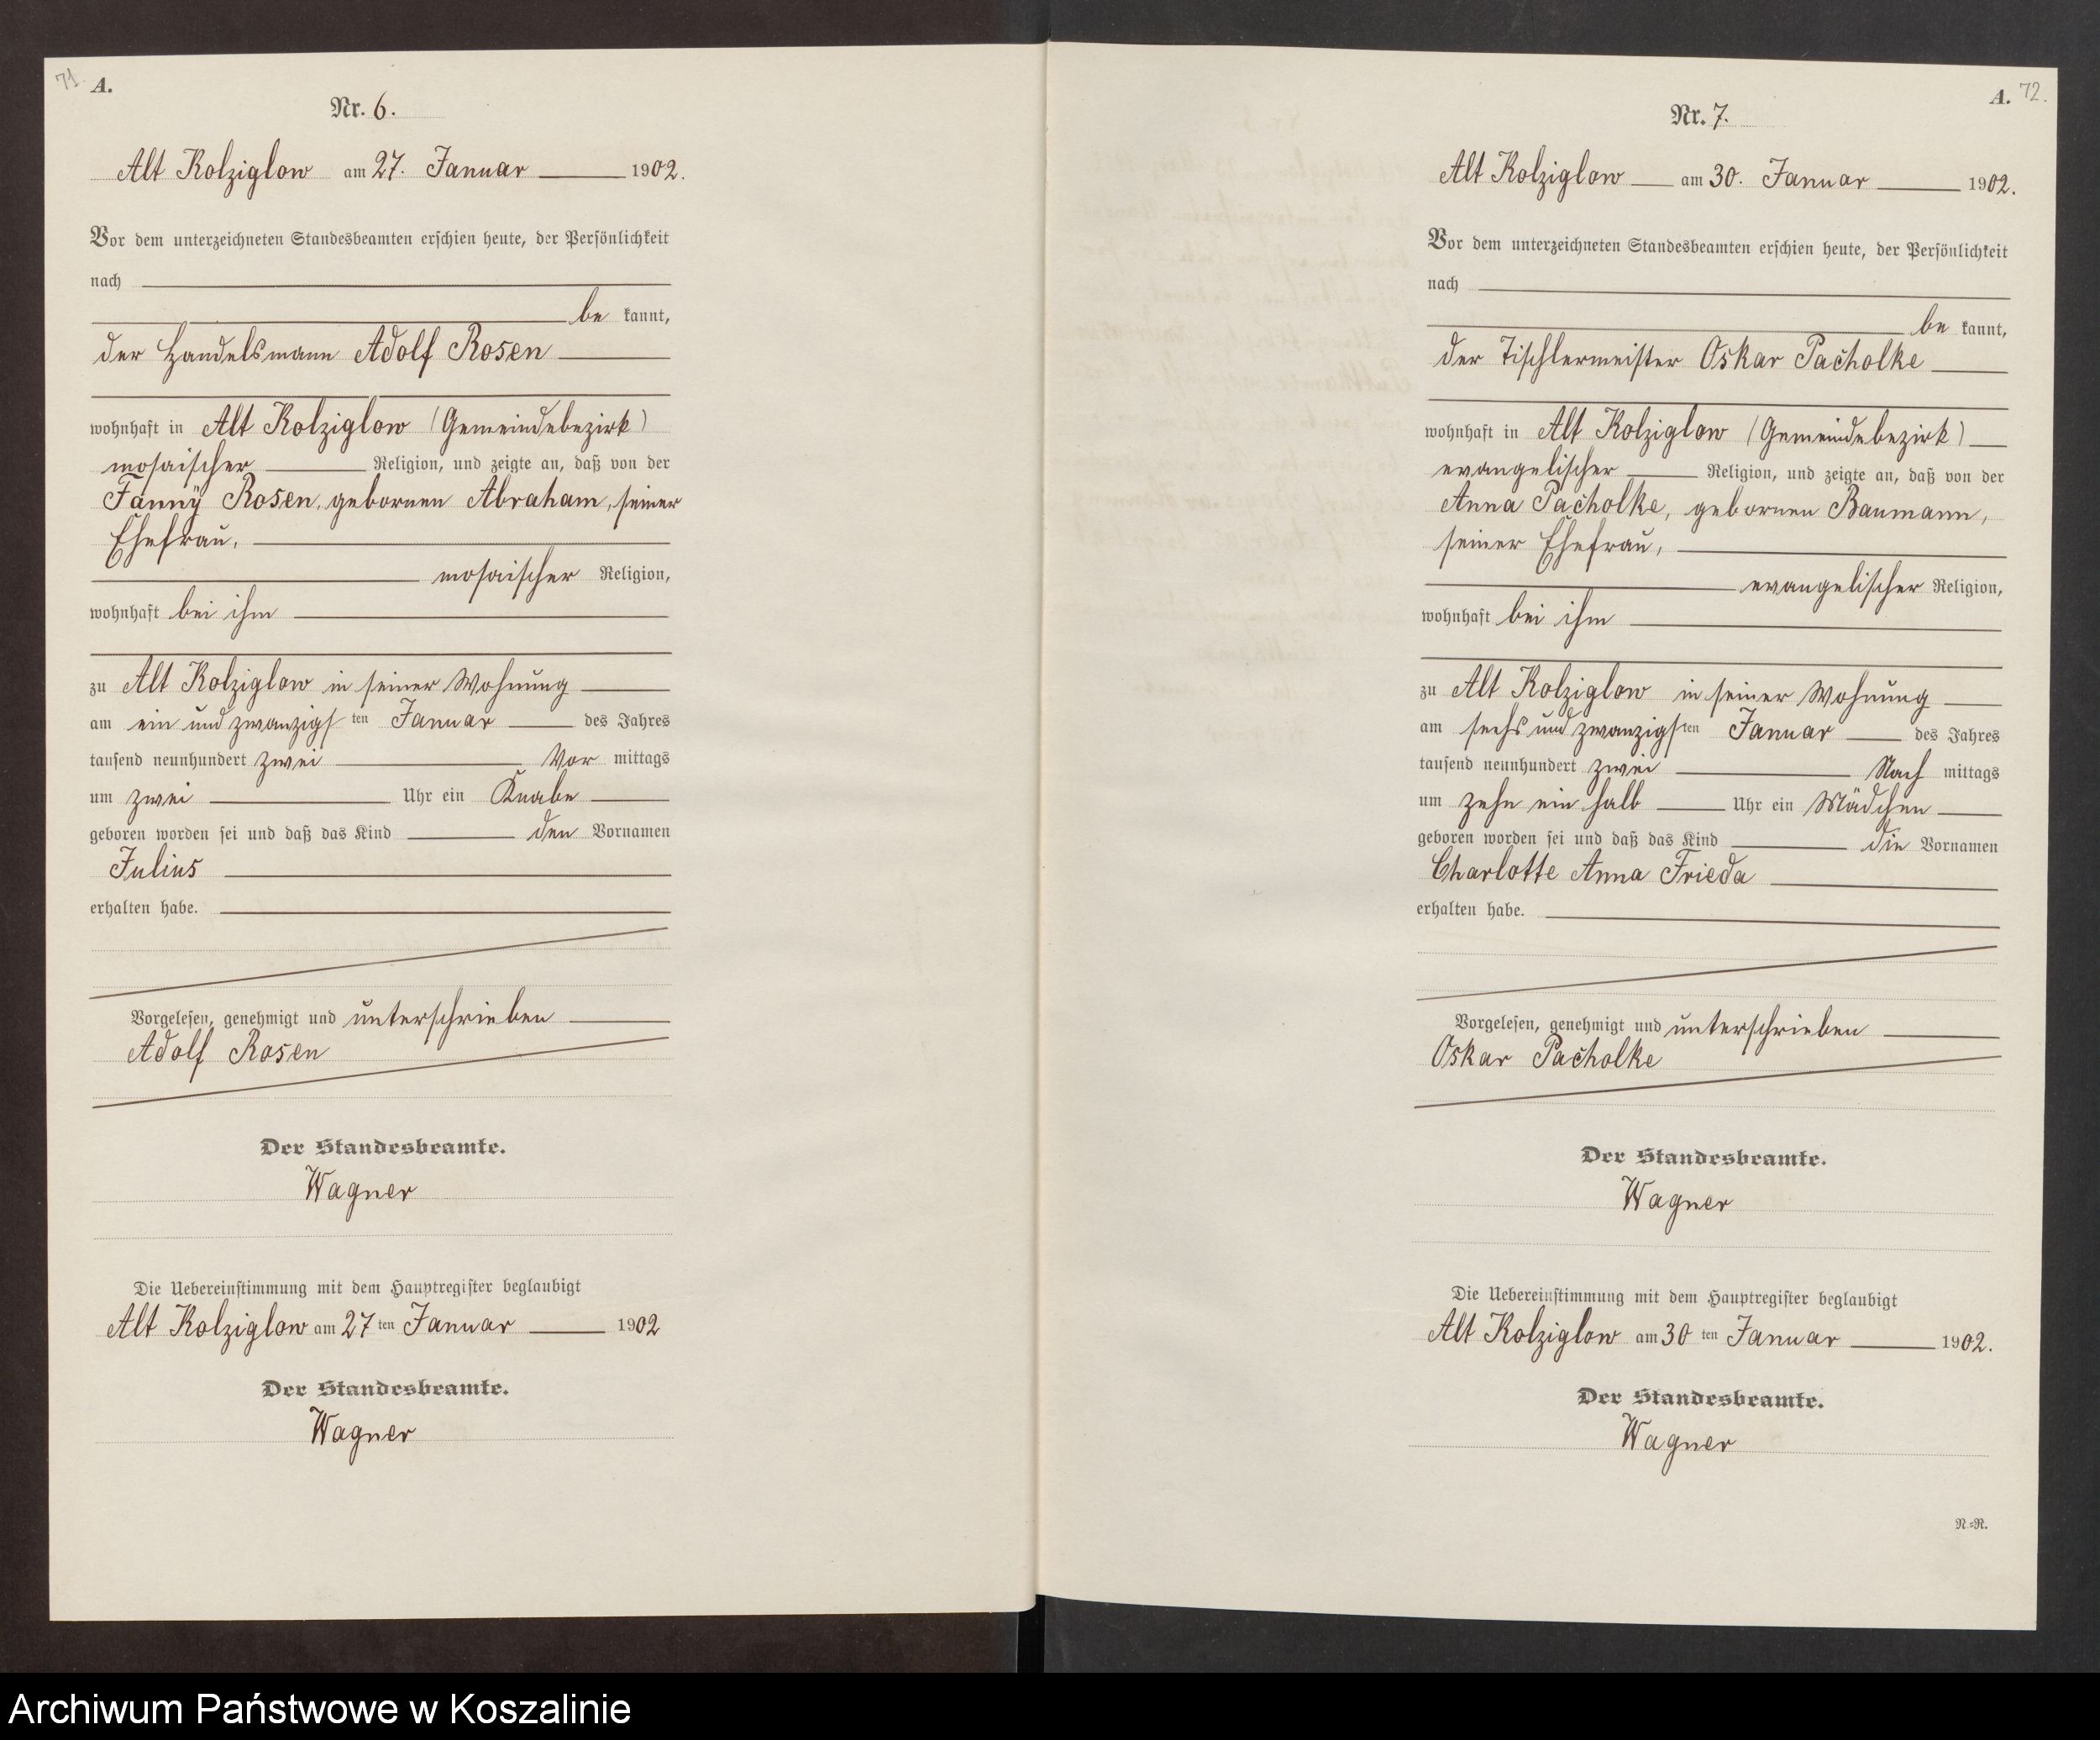 71. A.
Nr. 6.
Alt Kolziglow am 27. Januar 1902.
Vor dem unterzeichneten Standesbeamten erschien heute, der Persönlichkeit
nach
be kannt,
der Handelsmann Adolf Rosen
wohnhaft in Alt Kolziglow (Gemeindebezirk)
mosaischer Religion, und zeigte an, daß von der
Fanny Rosen, gebornen Abraham, seiner
Ehefrau,
mosaischer Religion,
wohnhaft bei ihm
zu Alt Kolziglow in seiner Wohnung
am ein und zwanzigsten Januar des Jahres
tausend neunhundert zwei Vor mittags
um zwei Uhr ein Knabe
geboren worden sei und daß das Kind den Vornamen
Julius
erhalten habe.
Vorgelesen, genehmigt und unterschrieben
Adolf Rosen
Der Standesbeamte.
Wagner
Die Uebereinstimmung mit dem Hauptregister beglaubigt
Alt Kolziglow am 27 ten Januar 1902
Der Standesbeamte.
Wagner
A. 72.
Nr. 7.
Alt Kolziglow am 30. Januar 1902.
Vor dem unterzeichneten Standesbeamten erschien heute, der Persönlichkeit
nach
be kannt,
der Tischlermeister Oskar Pacholke
wohnhaft in Alt Kolziglow (Gemeindebezirk)
evangelischer Religion, und zeigte an, daß von der
Anna Pacholke, gebornen Baumann,
seiner Ehefrau,
evangelischer Religion,
wohnhaft bei ihm
zu Alt Kolziglow in seiner Wohnung
am sechs und zwanzigsten Januar des Jahres
tausend neunhundert zwei Nach mittags
um zehn ein halb Uhr ein Mädchen
geboren worden sei und daß das Kind die Vornamen
Charlotte Anna Frieda
erhalten habe.
Vorgelesen, genehmigt und unterschrieben
Oskar Pacholke
Der Standesbeamte.
Wagner
Die Uebereinstimmung mit dem Hauptregister beglaubigt
Alt Kolziglow am 30 ten Januar 1902.
Der Standesbeamte.
Wagner
N.=R.
Archiwum Państwowe w Koszalinie